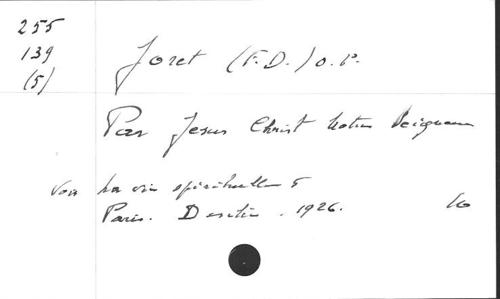 255
139
(5)
Joret (F.D.) O.P.
Par Jesus Christ Notre Seigneur
Voir La vie spirituelle 5
Paris. Desclée. 1926. 16